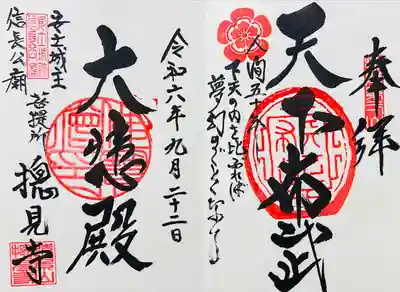 奉拝
天下布武
人間五十年
下天の内を比ぶれば
夢幻のごとくなり
令和六年九月二十二日
大徳殿
安土城主
信長公廟
菩提所
摠見寺